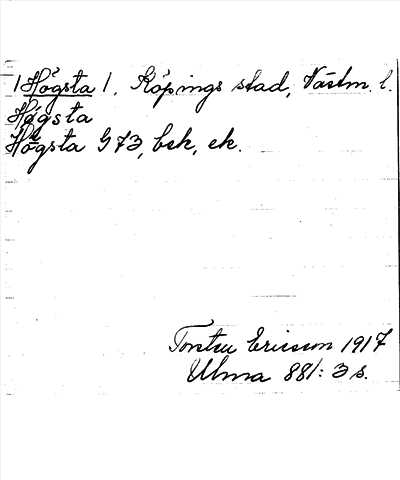 /Högsta/. Köpings stad, Västm. l.
Högsta
Högsta G 73, bsk, ek.
Torsten Ericsson 1917
Ulma 881: 3 s.